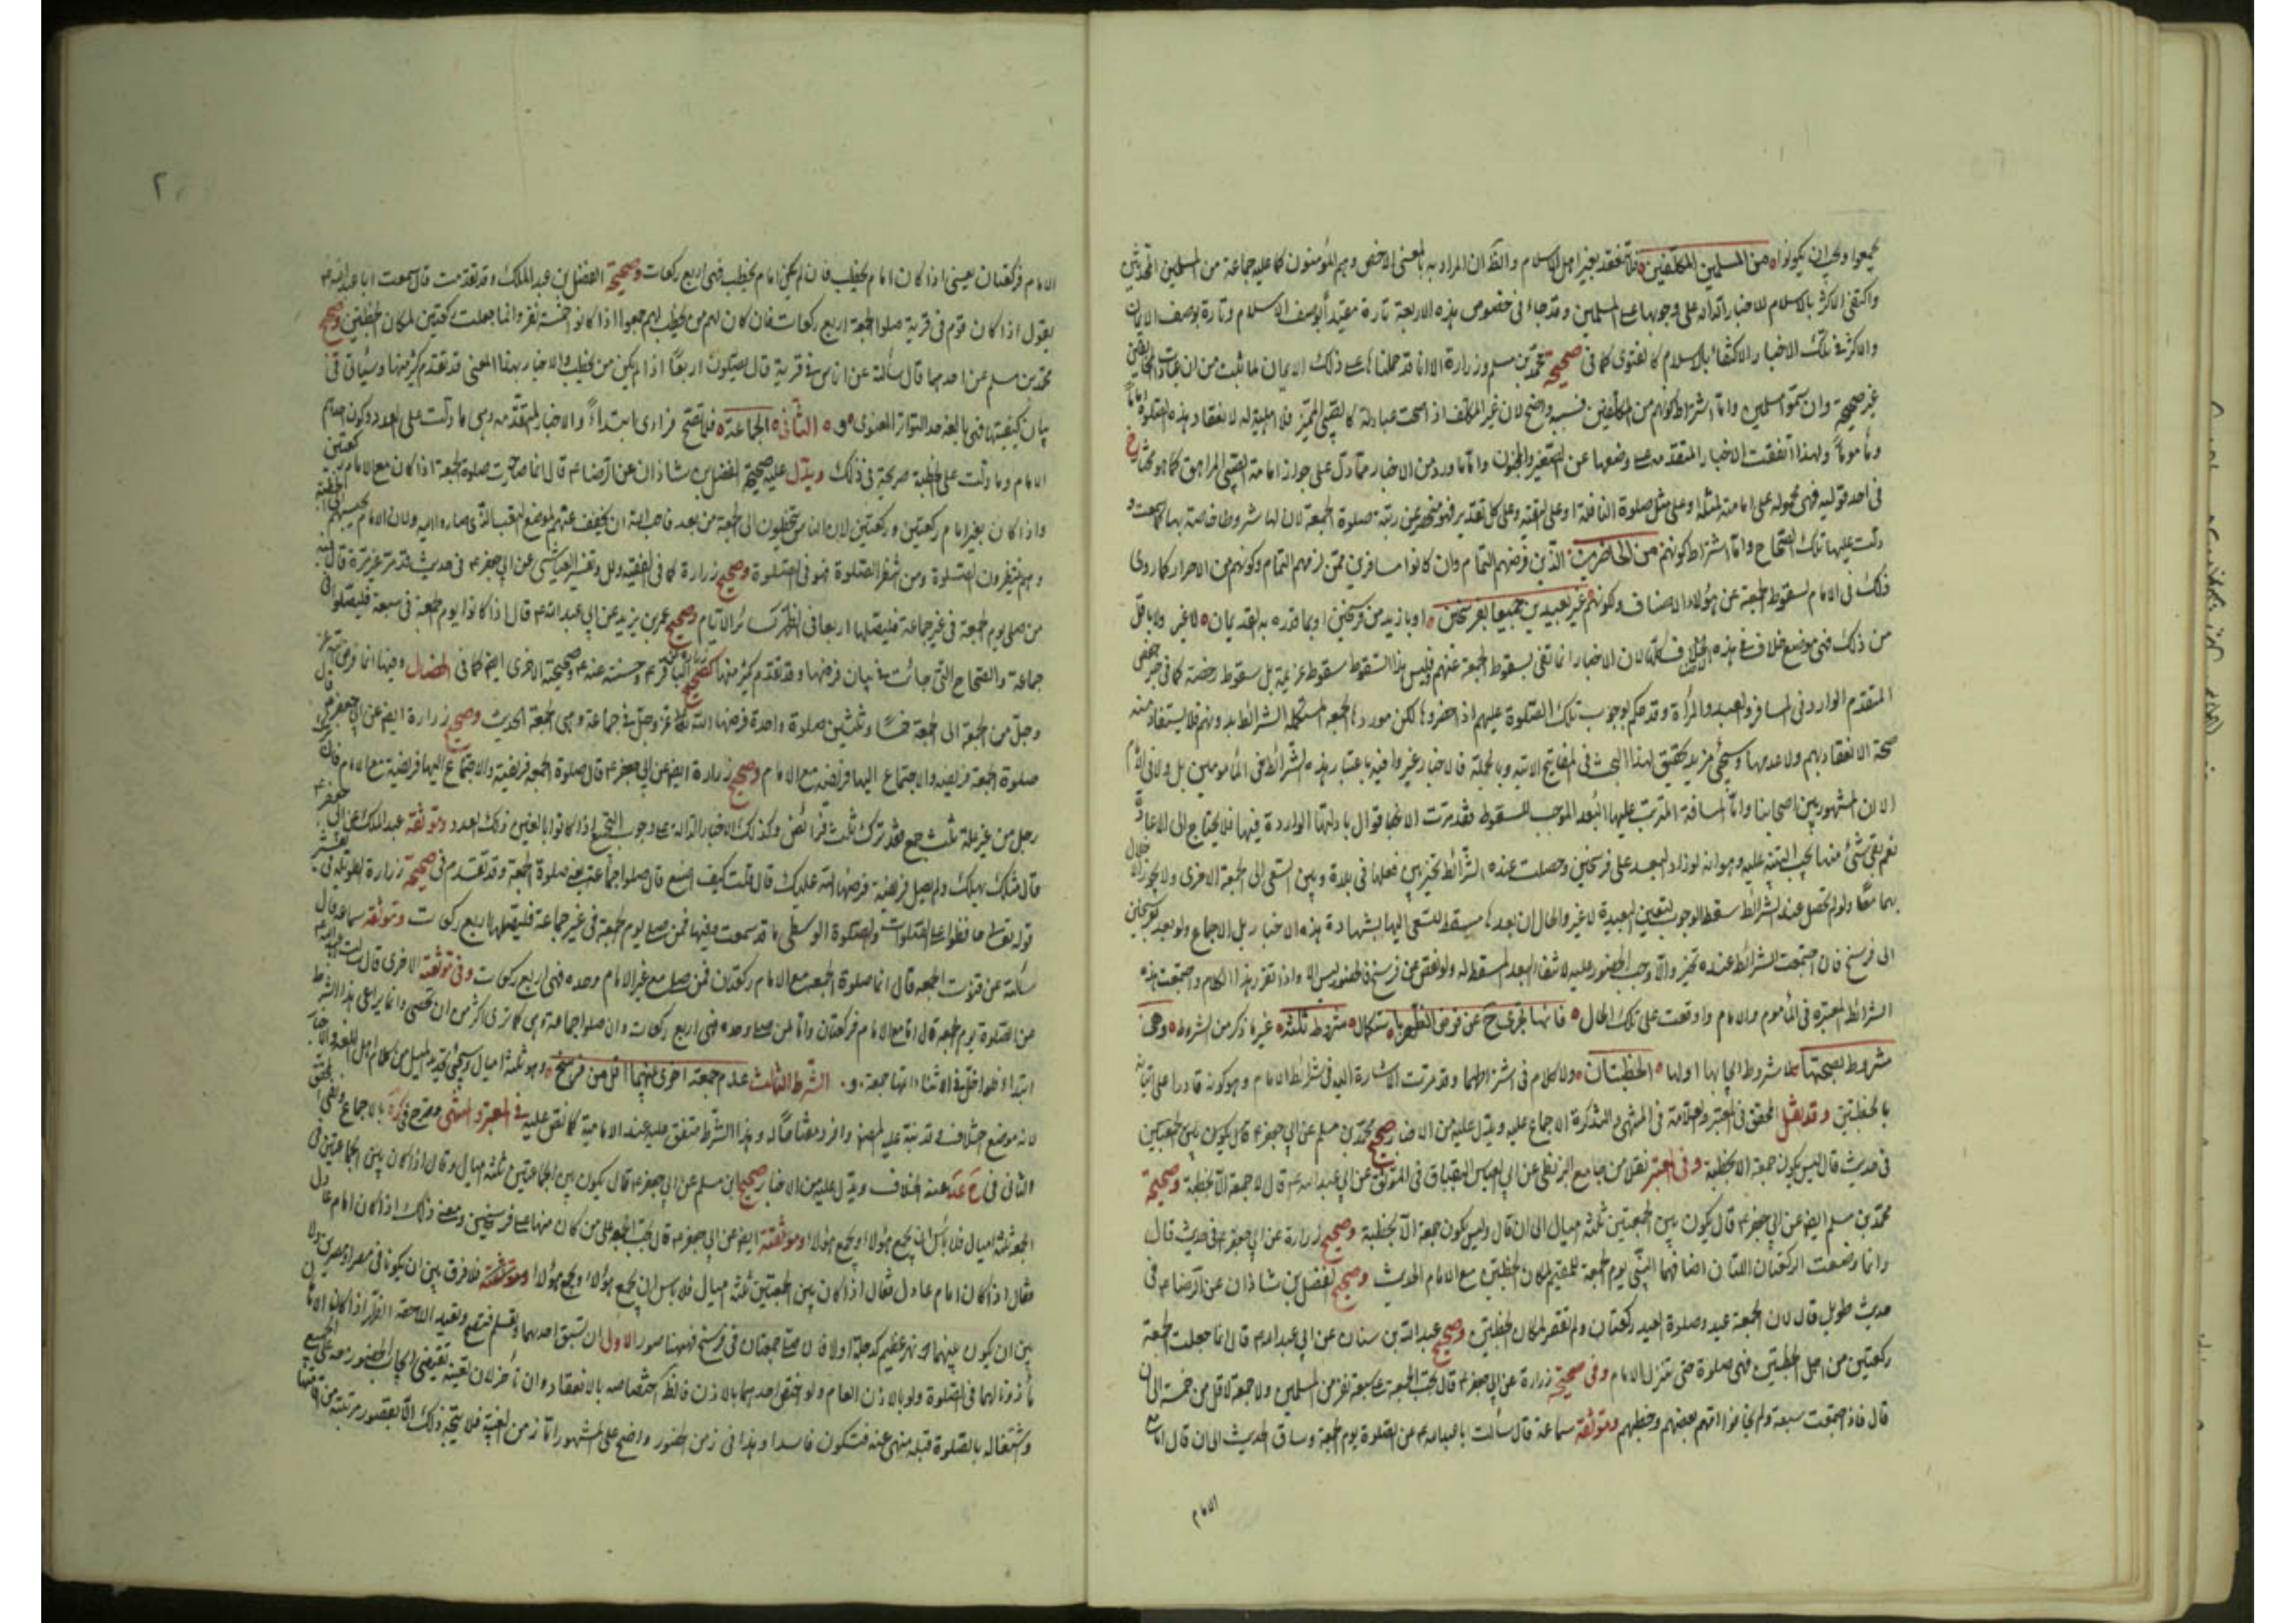 يجمعوا ويجب ان يكونوا من المسلمين المكلفين فلا تنعقد بغير اهل الاسلام والظاهر ان المراد به بالمعنى الاخص وهم المؤمنون كما عليه جماعة من المسلمين المحدثين
واكتفى الاكثر بالاسلام للاخبار الدالة على وجوبها على المسلمين وقد جاء في خصوص هذه الاربعة تارة مقيدا بوصف الاسلام وتارة بوصف الايمان
والاكثر في تلك الاخبار الاكتفاء بالاسلام كالفتوى كما في صحيحة محمد بن مسلم وزرارة الا انا قد حملنا على ذلك الايمان لما ثبت من ان عبادات المخالفين
غير صحيحة وان سموا مسلمين واما اشتراط كونهم من المكلفين فسببه واضح لان غير المكلف اذا صحت عبادته كالصبي المميز فلا اهلية له لانعقاد هذه الصلوة اماما
وماموما ولهذا اتفقت الاخبار المتقدمة على وضعها عن الصغير والمجنون واما ما ورد من الاخبار مما دل على جواز امامة الصبي المراهق كما هو مختار خ
في احد قوليه فهي محمولة على امامته لمثله او على مثل صلوة النافلة او على التقية وعلى كل تقدير فهو منحصر عن رتبة صلوة الجمعة لان لها شروطا خاصة بها كما سمعت و
دلت عليها تلك الصحاح واما اشتراط كونهم من الحاضرين الذين فرضهم التمام وان كانوا مسافرين ممن لزمهم التمام وكونهم من الاحرار كما روى
ذلك في الامام لسقوط الجمعة عن هؤلاء الاصناف وكونهم غير بعيدين جميعا بفرسخين او بازيد من فرسخين او بما قدره به القديمان لا غير ولا باقل
من ذلك فهي موضع خلاف في هذه لان الاخبار انما تفي بسقوط الجمعة عنهم وليس هذا السقوط سقوط عزيمة بل سقوط رخصة كما في خبر حفص
المتقدم الوارد في المسافر والعبد والمراة وقد حكم بوجوب تلك الصلوة عليهم اذا حضروها لكن موردها الجمعة المستكملة الشرائط بدونهم فلا يستفاد منه
صحة الانعقاد بهم ولا عدمها وسيجئ مزيد تحقيق لهذا البحث في المفاتيح الاتية وبالجملة فالاخبار غير وافية باعتبار هذه الشرائط في المامومين بل ولا في الامام
الا ان المشهور بين اصحابنا واما المسافة المترتب عليها البعد الموجب للسقوط فقد مرت الاقوال بادلتها الواردة فيها فلا يحتاج الى الاعادة
نعم بقي شئ منها يجب التنبيه عليه وهو انه لو زاد البعد على فرسخين وحصلت عنده الشرائط تخير بين فعلها في بلدة وبين السعي الى الجمعة الاخرى ولا يجوز الاخلال
بهما معا ولو لم تحصل عنده الشرائط سقط الوجوب لتعيين البعيدة لا غير والحال ان بعدها مسقط للسعي اليها بشهادة هذه الاخبار بل الاجماع ولو بعد بفرسخين
الى فرسخ فان اجتمعت الشرائط عنده تخير والا وجب الحضور عليه لانتفاء البعد المسقط له ولو نقص عن فرسخ فالحضور ليس الا واذا تقرر هذا الكلام واجتمعت هذه
الشرائط المعتبرة في المأموم والامام واوقعت على تلك الحال فانها تجزي ح عن فرض الظهر باستكمال شروط ثلثة غير ما ذكر من الشروط وهي
شروط لصحتها لا شروط ايجابها اولها الخطبتان ولا كلام في اشتراطهما وقد مرت الاشارة اليه في شرائط الامام وهو كونه قادرا على اتيانه
بالخطبتين وقد نقل المحقق في المعتبر والعلامة في المنتهى والتذكرة الاجماع عليه ويدل عليه من الاخبار صحيح محمد بن مسلم عن ابي جعفر ع قال يكون بين الجمعتين
في حديث قال ليس يكون جمعة الا بخطبة وفي المعتبر نقلا من جامع البزنطي عن ابي العباس البقباق في الموثق عن ابي عبد الله ع قال لا جمعة الا بخطبة وصحيحة
محمد بن مسلم ايضا عن ابي جعفر ع قال يكون بين الجمعتين ثلثة اميال الى ان قال وليس يكون جمعة الا بخطبة وصحيح زرارة عن ابي جعفر ع في حديث قال
وانما وضعت الركعتان اللتان اضافهما النبي يوم الجمعة للمقيم لمكان الخطبتين مع الامام الحديث وصحيح الفضل بن شاذان عن الرضا ع في
حديث طويل قال لان الجمعة عيد وصلوة العيد ركعتان ولم تقصر لمكان الخطبتين وصحيح عبد الله بن سنان عن ابي عبد الله ع قال انما جعلت الجمعة
ركعتين من اجل الخطبتين فهي صلوة حتى ينزل الامام وفي صحيحة زرارة عن ابي جعفر ع قال تجب الجمعة على سبعة نفر من المسلمين ولا جمعة لاقل من خمسة الى ان
قال فاذا اجتمعت سبعة ولم يخافوا امهم بعضهم وخطبهم وموثقة سماعة قال سألت ابا عبد الله ع عن الصلوة يوم الجمعة وساق الحديث الى ان قال اما مع
الامام
الامام فركعتان يعني اذا كان امام يخطب فان لم يكن امام يخطب فهي اربع ركعات وصحيحة الفضل بن عبد الملك وقد تقدمت قال سمعت ابا عبد الله ع
يقول اذا كان قوم في قرية صلوا الجمعة اربع ركعات فان كان لهم من يخطب لهم جمعوا اذا كانوا خمسة نفر وانما جعلت ركعتين لمكان الخطبتين وصحيح
محمد بن مسلم عن احدهما قال سألته عن اناس في قرية قال يصلون اربعا اذا لم يكن من يخطب والاخبار بهذا المعنى قد تقدم كثير منها وسيأتي في
بيان كيفيتها فهي بالغة حد التواتر المعنوي و الثاني الجماعة فلا تصح فرادى ابتداء والاخبار المتقدمة وهي ما دلت على العدد وكون احدهم
الامام وما دلت على الخطبة صريحة في ذلك ويدل عليه صحيحة الفضل بن شاذان عن الرضا ع قال انما صارت صلوة الجمعة اذا كان مع الامام ركعتين
واذا كان بغير امام ركعتين وركعتين لان الناس يتخطون الى الجمعة من بعد فاحب الله ان يخفف عنهم لموضع التعب الذي صاروا اليه ولان الامام يحبسهم للخطبة
وهم منتظرون للصلوة ومن انتظر الصلوة فهو في الصلوة وصحيح زرارة كما في الفقيه والعلل وتفسير العياشي عن ابي جعفر ع في حديث قد مر غير مرة قال فيه
من صلى يوم الجمعة في غير جماعة فليصلها اربعا في الظهر كسائر الايام وصحيح عمر بن يزيد عن ابي عبد الله ع قال اذا كانوا يوم الجمعة في سبعة فليصلوا في
جماعة والصحاح التي جاءت في بيان فرضها وقد تقدم كثير منها كصحيح زرارة عن الباقر ع وحسنته عنه ع وصحيحته الاخرى ايضا كما في الخصال وفيها انما فرض الله عز
وجل من الجمعة الى الجمعة خمسا وثلثين صلوة واحدة فرضها الله عز وجل في جماعة وهي الجمعة الحديث وصحيح زرارة ايضا عن ابي جعفر ع قال
صلوة الجمعة فريضة والاجتماع اليها فريضة مع الامام وصحيح زرارة ايضا عن ابي جعفر ع قال صلوة الجمعة فريضة والاجتماع اليها فريضة مع الامام فان ترك
رجل من غير علة ثلث جمع فقد ترك ثلث فرائض وكذلك الاخبار الدالة على وجوب التجمع اذا كانوا بالغين ذلك العدد وموثقة عبد الملك عن ابي جعفر ع
قال مثلك يهلك ولم يصل فريضة فرضها الله عليك قال قلت كيف اصنع قال صلوا جماعة يعني صلوة الجمعة وقد تقدم في صحيحة زرارة الطويلة في تفسير
قوله تعالى حافظوا على الصلوات والصلوة الوسطى ما قد سمعت وفيها فمن صلى يوم الجمعة في غير جماعة فليصلها اربع ركعات وموثقة سماعة قال
سألته عن قنوت الجمعة قال انما صلوة الجمعة مع الامام ركعتان فمن صلى مع غير الامام وحده فهي اربع ركعات وفي موثقته الاخرى قال سألت ابا عبد الله ع
عن الصلوة يوم الجمعة قال اما مع الامام فركعتان واما من صلى وحده فهي اربع ركعات وان صلوا جماعة وهي كما ترى اكثر من ان تحصى وانما يراعى هذا الشرط
ابتداء فلو في الاثناء اتمها جمعة و الشرط الثالث عدم جمعة اخرى بينهما اقل من فرسخ وهو ثلثة اميال وسيجئ تحديد الميل من كلام اهل اللغة والاخبار
لانه موضع اختلاف وقد نبه عليه المصنف وافرد مفتاحا له وهذا الشرط متفق عليه عند الامامية كما نص عليه في المعتبر والمنتهى وصرح في كره بالاجماع ونفى المحقق
الثاني في عنه الخلاف ويدل عليه من الاخبار صحيح ابن مسلم عن ابي جعفر ع قال يكون بين الجماعتين ثلثة اميال وقال اذا كان بين الجماعتين في
الجمعة ثلثة اميال فلا بأس ان يجمع هؤلاء ويجمع هؤلاء وموثقته ايضا عن ابي جعفر ع قال تجب الجمعة على من كان منها على فرسخين ومعنى ذلك اذا كان امام عادل
فقال اذا كان امام عادل فقال اذا كان بين الجمعتين ثلثة اميال فلا بأس ان يجمع هؤلاء ويجمع هؤلاء فلا فرق بين ان يكونا في مصر او مصرين ولا
بين ان يكون بينهما نهر عظيم كدجلة اولا فان صليت جمعتان في فرسخ فههنا صور الاولى ان تسبق احدهما ولو بتسليم فتصح وتعيد اللاحقة الظهر اذا كان الامامان
مأذونا لهما في الصلوة ولو بالاذن العام ولو اختص احدهما بالاذن فالظاهر اختصاصه بالانعقاد وان تأخر لان تعيينه يقتضي ايجاب الحضور معه على الجميع
واشتغاله بالصلوة قبله منهي عنه فتكون فاسدا وهذا في زمن الحضور واضح على المشهور اما زمن الغيبة فلا يتجه ذلك الا بقصور مرتبته من